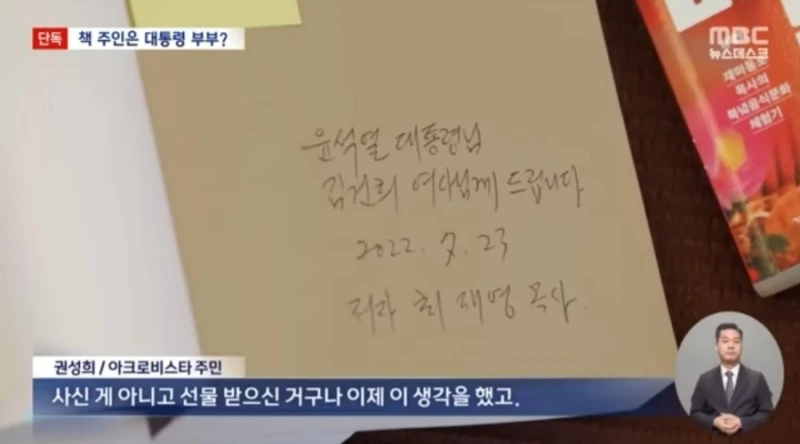 단독 책 주인은 대통령 부부?
MBC
뉴스데스크
재미동포
목사의
북녘음식문화
체험기
윤석열 대통령님
김건희 여사님께 드립니다
2022. 7. 23
저자 최재영 목사
권성희 / 아크로비스타 주민
사신 게 아니고 선물 받으신 거구나 이제 이 생각을 했고.